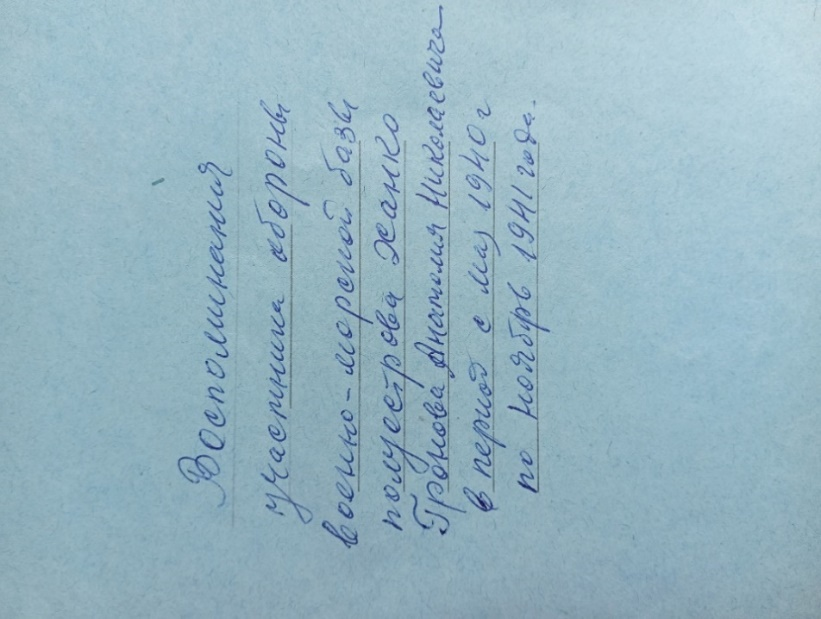 Воспоминания
участника обороны
военно-морской базы
полуострова Ханко
Гронова Анатолия Николаевича
в период с мая 1940 г
по ноябрь 1941 года.